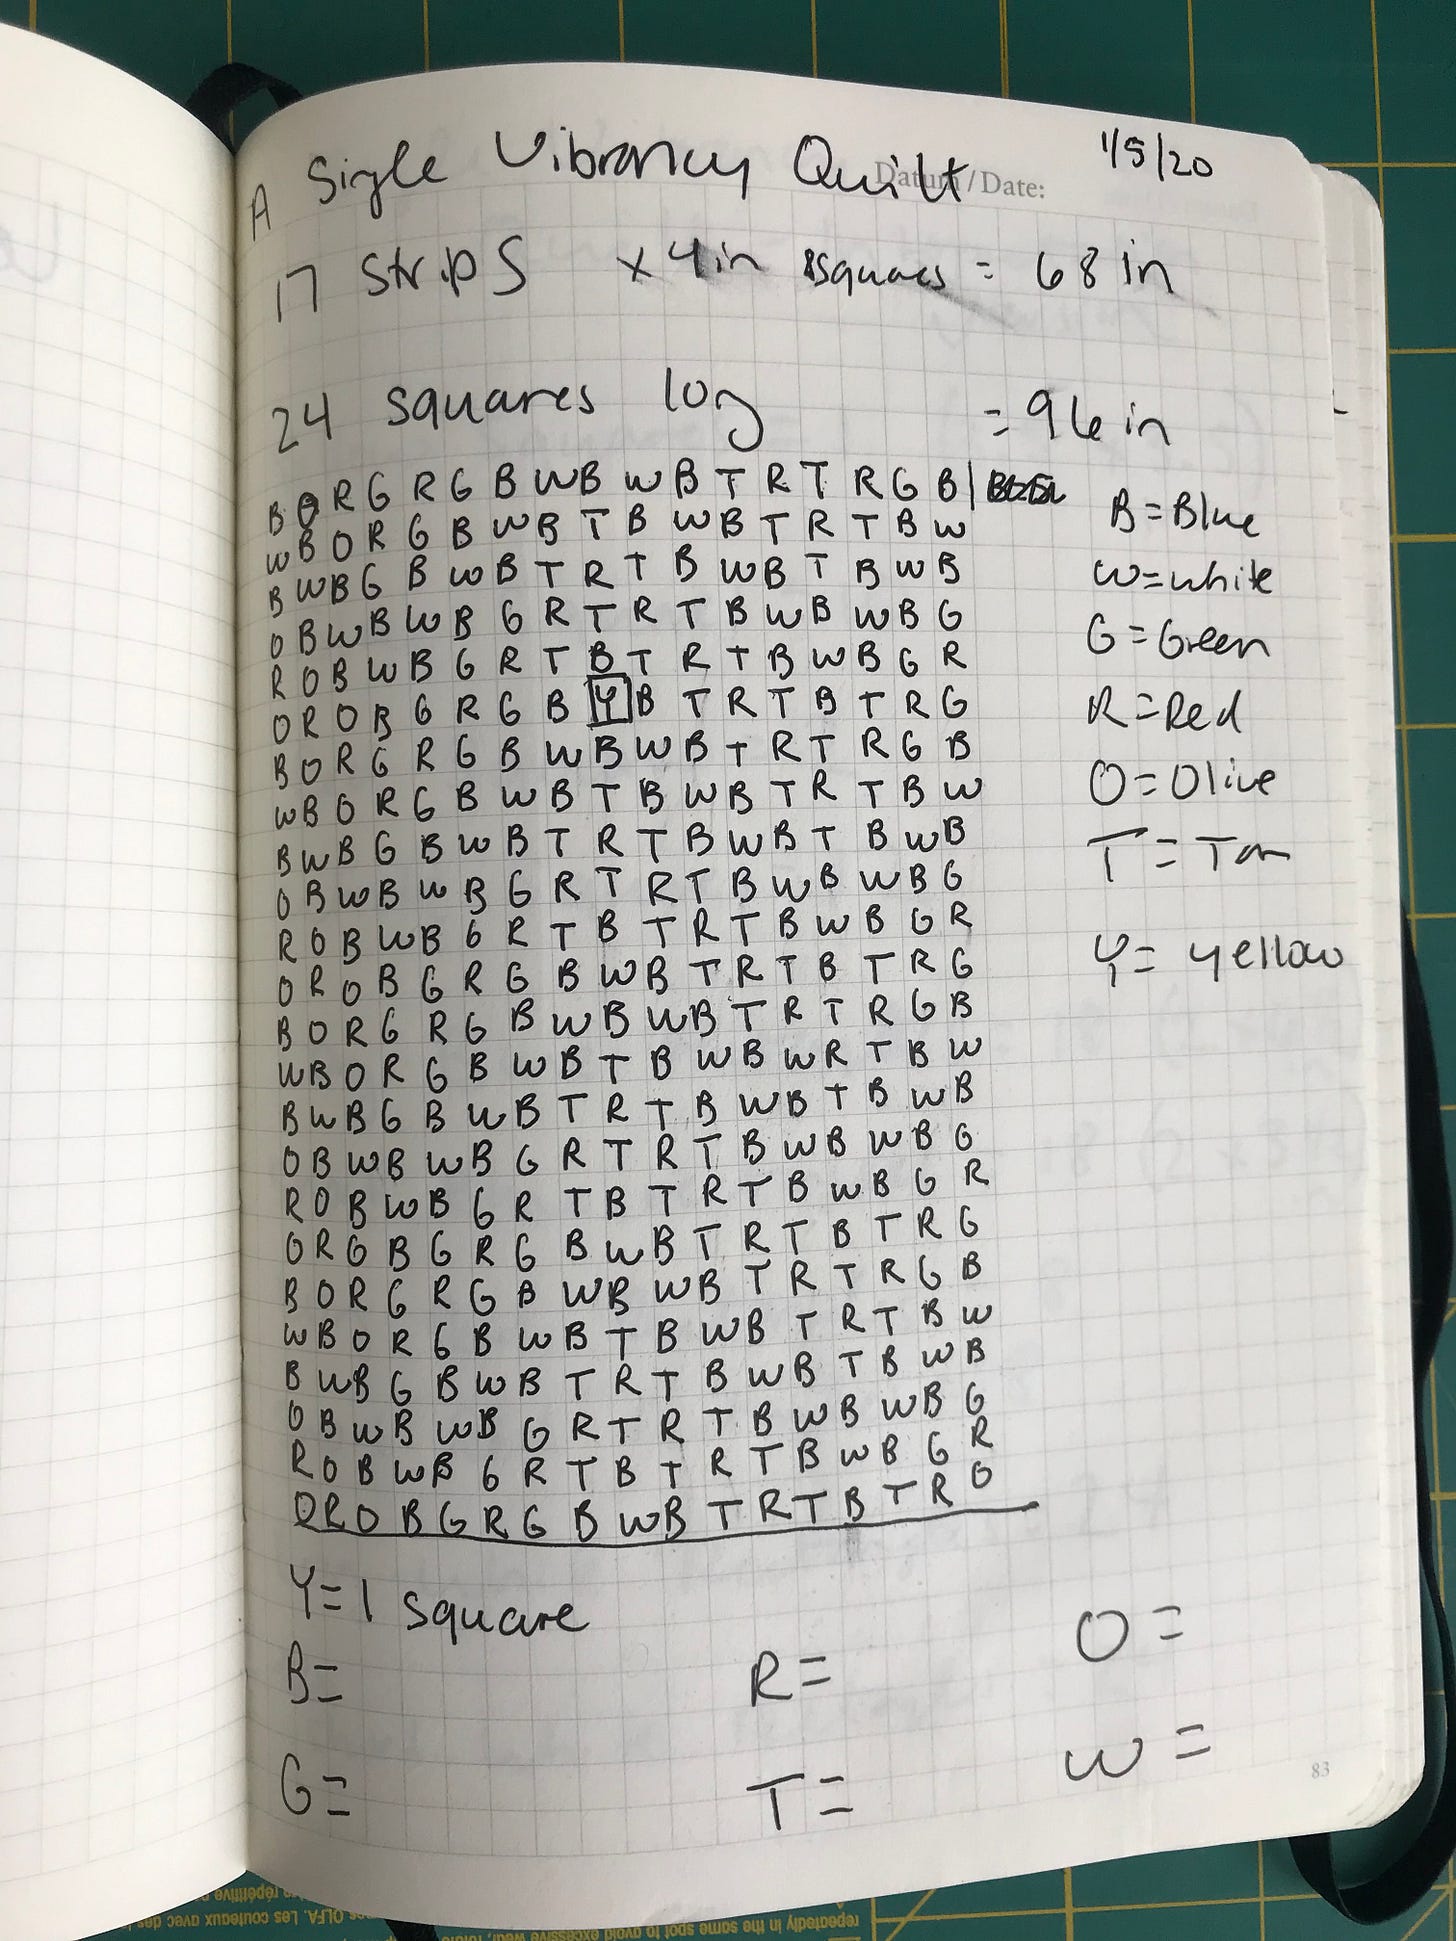 A Single Vibrancy Quilt 1/5/20
Datum/Date:
17 Strips x 4in squares = 68 in
24 squares log = 96in
B O R G R G B W B W B T R T R G B |
W B O R G B W B T B W B T R T B W
B W B G B W B T R T B W B T B W B
O B W B W B G R T R T B W B W B G
R O B W B G R T B T R T B W B G R
O R O B G R G B Y B T R T B T R G
B O R G R G B W B W B T R T R G B
W B O R G B W B T B W B T R T B W
B W B G B W B T R T B W B T B W B
O B W B W B G R T R T B W B W B G
R O B W B G R T B T R T B W B G R
O R O B G R G B W B T R T B T R G
B O R G R G B W B W B T R T R G B
W B O R G B W B T B W B W R T B W
B W B G B W B T R T B W B T B W B
O B W B W B G R T R T B W B W B G
R O B W B G R T B T R T B W B G R
O R O B G R G B W B T R T B T R G
B O R G R G B W B W B T R T R G B
W B O R G B W B T B W B T R T B W
B W B G B W B T R T B W B T B W B
O B W B W B G R T R T B W B W B G
R O B W B G R T B T R T B W B G R
O R O B G R G B W B T R T B T R G
B = Blue
W = white
G = Green
R = Red
O = Olive
T = Tan
Y = yellow
Y = 1 square
B =
R =
O =
G =
T =
W =
83